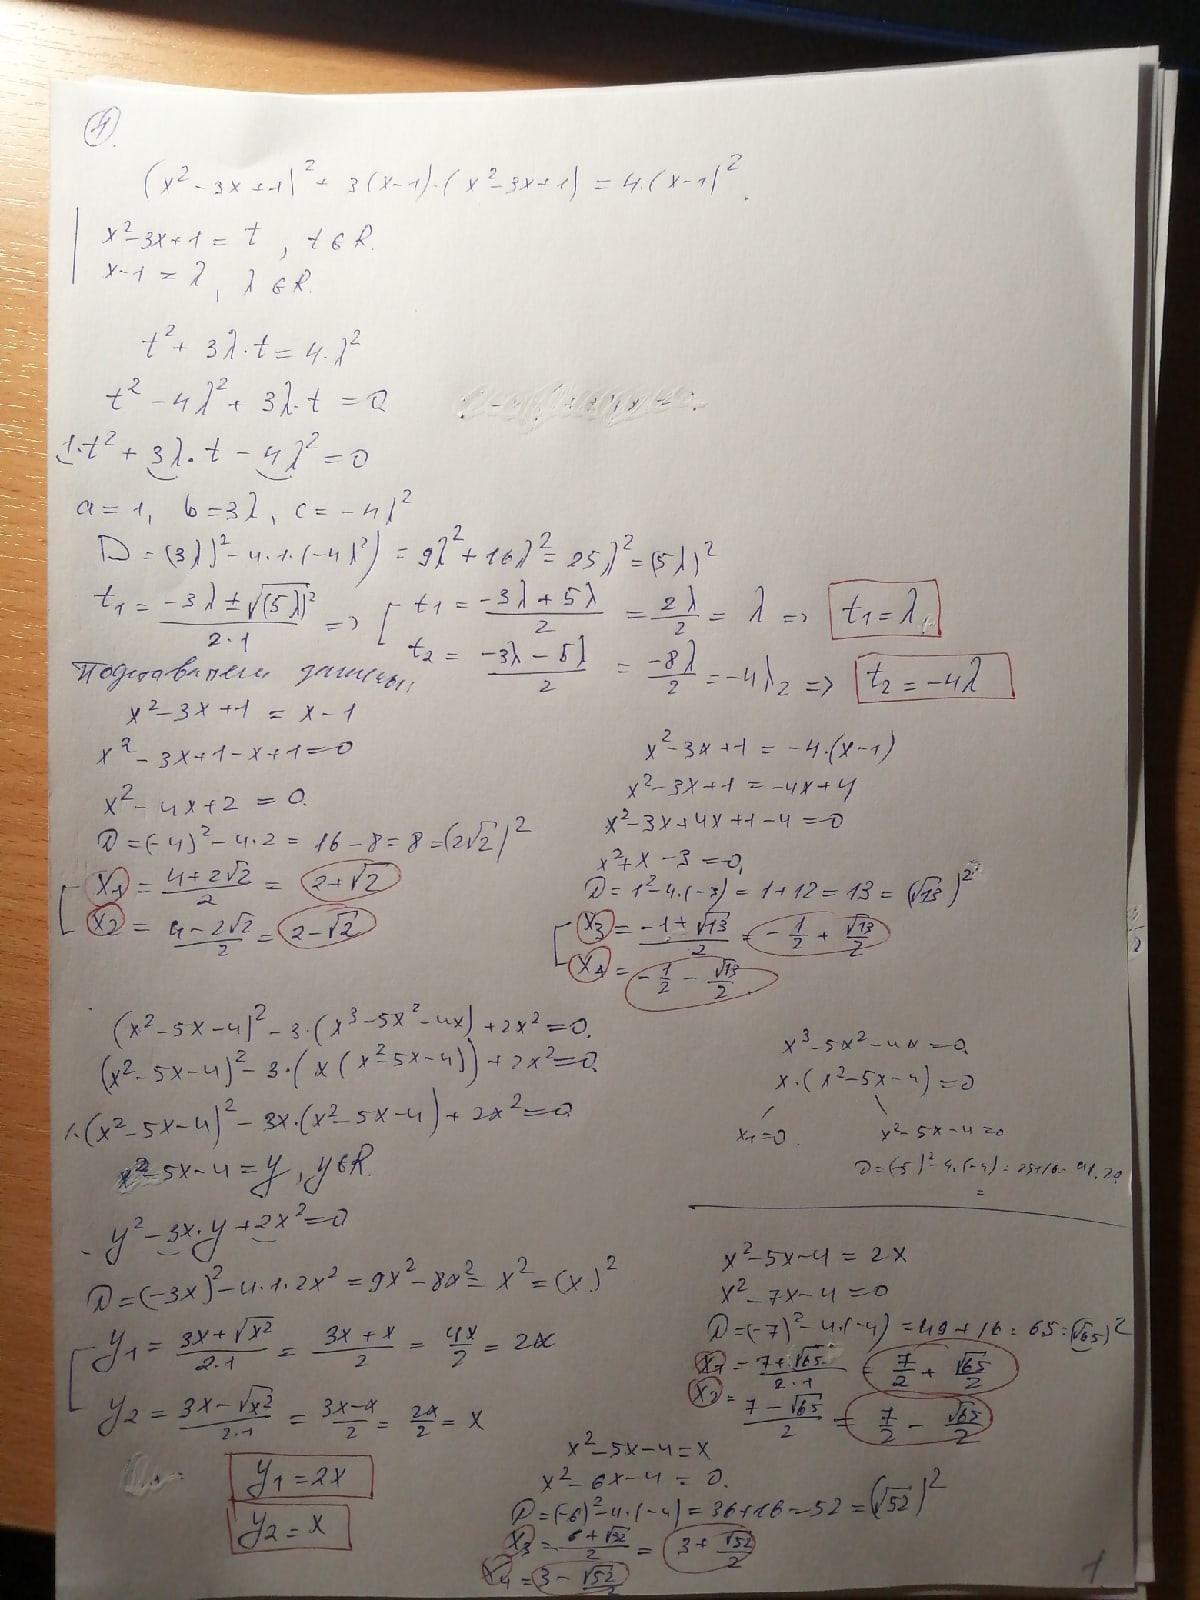 4.
(x² - 3x + 1)² + 3(x-1)·(x² - 3x + 1) = 4·(x-1)².
x² - 3x + 1 = t, t ∈ R.
x - 1 = λ, λ ∈ R.
t² + 3λ·t = 4·λ²
t² - 4λ² + 3λ·t = 0
1·t² + 3λ·t - 4λ² = 0
a = 1, b = 3λ, c = -4λ²
D = (3λ)² - 4·1·(-4λ²) = 9λ² + 16λ² = 25λ² = (5λ)²
t1 = (-3λ ± √(5λ)²)/(2·1) => [ t1 = (-3λ + 5λ)/2 = 2λ/2 = λ => t1 = λ
t2 = (-3λ - 5λ)/2 = -8λ/2 = -4λ2 => t2 = -4λ
Подставляем
x² - 3x + 1 = x - 1
x² - 3x + 1 - x + 1 = 0
x² - 4x + 2 = 0.
D = (-4)² - 4·2 = 16 - 8 = 8 = (2√2)²
x1 = (4 + 2√2)/2 = 2 + √2
x2 = (4 - 2√2)/2 = 2 - √2
x² - 3x + 1 = -4·(x-1)
x² - 3x + 1 = -4x + 4
x² - 3x + 4x + 1 - 4 = 0
x² + x - 3 = 0.
D = 1² - 4·(-3) = 1 + 12 = 13 = (√13)²
x3 = (-1 + √13)/2 = -1/2 + √13/2
x4 = -1/2 - √13/2
(x² - 5x - 4)² - 3·(x³ - 5x² - 4x) + 2x² = 0.
(x² - 5x - 4)² - 3·(x(x² - 5x - 4)) + 2x² = 0.
1·(x² - 5x - 4)² - 3x·(x² - 5x - 4) + 2x² = 0
x² - 5x - 4 = y, y ∈ R.
y² - 3x·y + 2x² = 0
D = (-3x)² - 4·1·2x² = 9x² - 8x² = x² = (x)²
y1 = (3x + √x²)/(2·1) = (3x + x)/2 = 4x/2 = 2x
y2 = (3x - √x²)/(2·1) = (3x - x)/2 = 2x/2 = x
y1 = 2x
y2 = x
x³ - 5x² - 4x = 0.
x·(x² - 5x - 4) = 0
x1 = 0. x² - 5x - 4 = 0
D = (-5)² - 4·(-4) = 25 + 16 = 41
x² - 5x - 4 = 2x
x² - 7x - 4 = 0
D = (-7)² - 4·(-4) = 49 + 16 = 65 = (√65)²
x1 = (7 + √65)/(2·1) = 7/2 + √65/2
x2 = (7 - √65)/2 = 7/2 - √65/2
x² - 5x - 4 = x
x² - 6x - 4 = 0.
D = (-6)² - 4·(-4) = 36 + 16 = 52 = (√52)²
x3 = (6 + √52)/2 = 3 + √52/2
x4 = 3 - √52/2
1